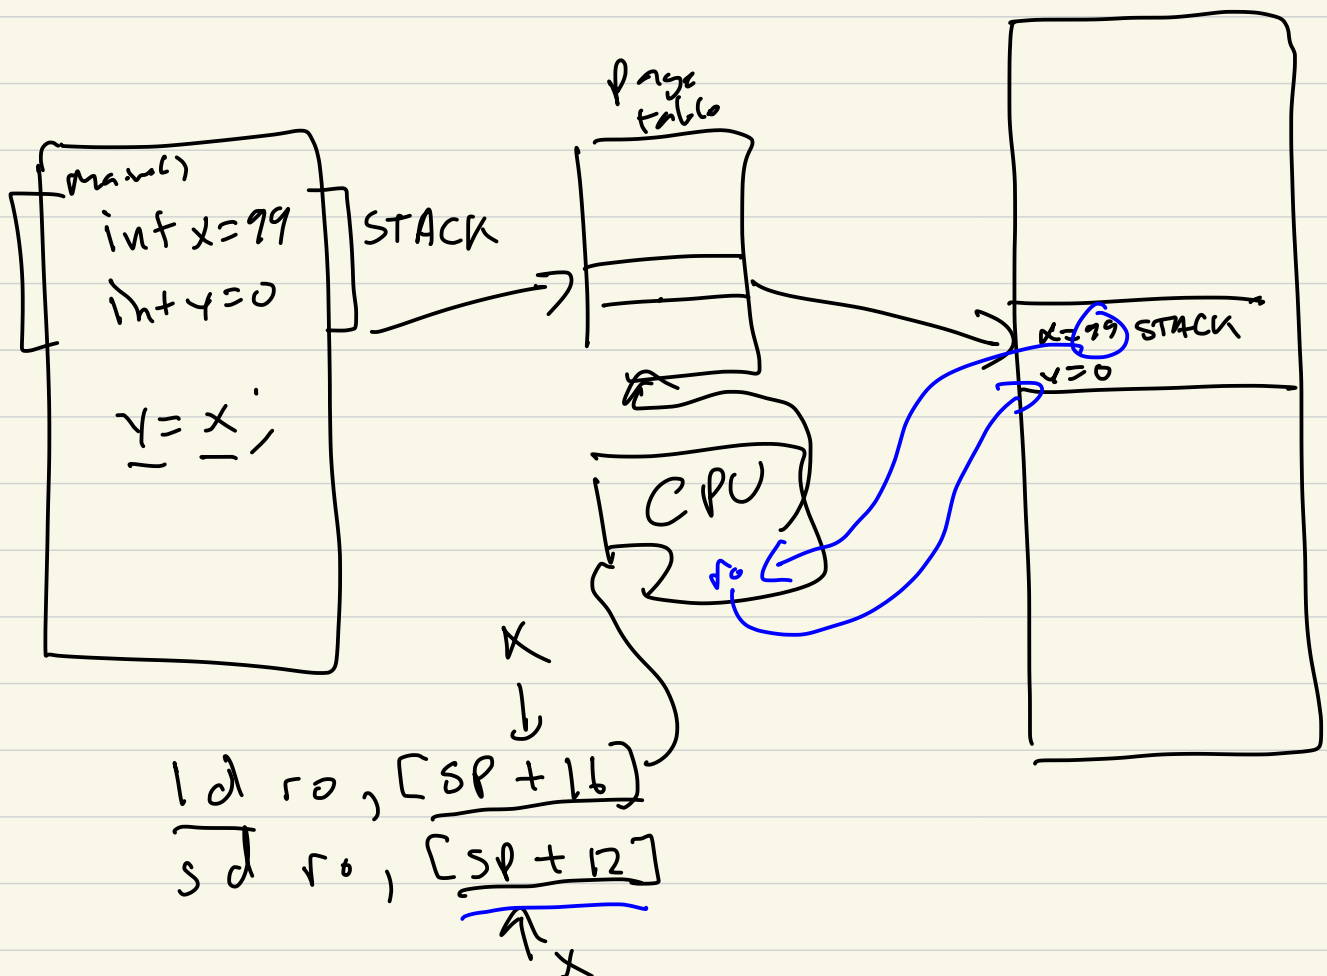 main()
int x=99
int y=0
y= x ;
STACK
Page
table
CPU
r0
x=99 STACK
y=0
X
ld r0, [SP + 16]
sd r0, [SP + 12]